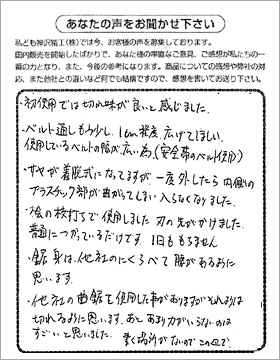 あなたの声をお聞かせ下さい
私ども神沢精工(株)では今、お客様の声を募集しております。
国内販売を開始したばかりで、あなた様の率直なご意見、ご感想が私たちの一
番の力となり、また、今後の参考になります。商品についての感想や弊社の対
応、また他社との違いなど何でも結構ですので、感想を書いてお送り下さい。
・初使用では切れ味が良いと感じました。
・ベルト通しも少し、1cm程度 広げてほしい、
使用しているベルトの幅が広い為(安全帯のベルト使用)
・サヤが着脱式になってますが、一度外したら内側の
プラスチック部が曲がってしまい 入らなくなりました。
・桧の枝打ちで使用しました 刃の先がかけました。
普通につかっているだけです 1日ももちません
・鋸身は、他社のにくらべて 腰があるように
思います。
・他社の曲鋸を使用した事がありますがそれよりは
切れるように思います。あと、あまり力がいらないのは
すごいと思いました。 書く場所がないのでこの辺で